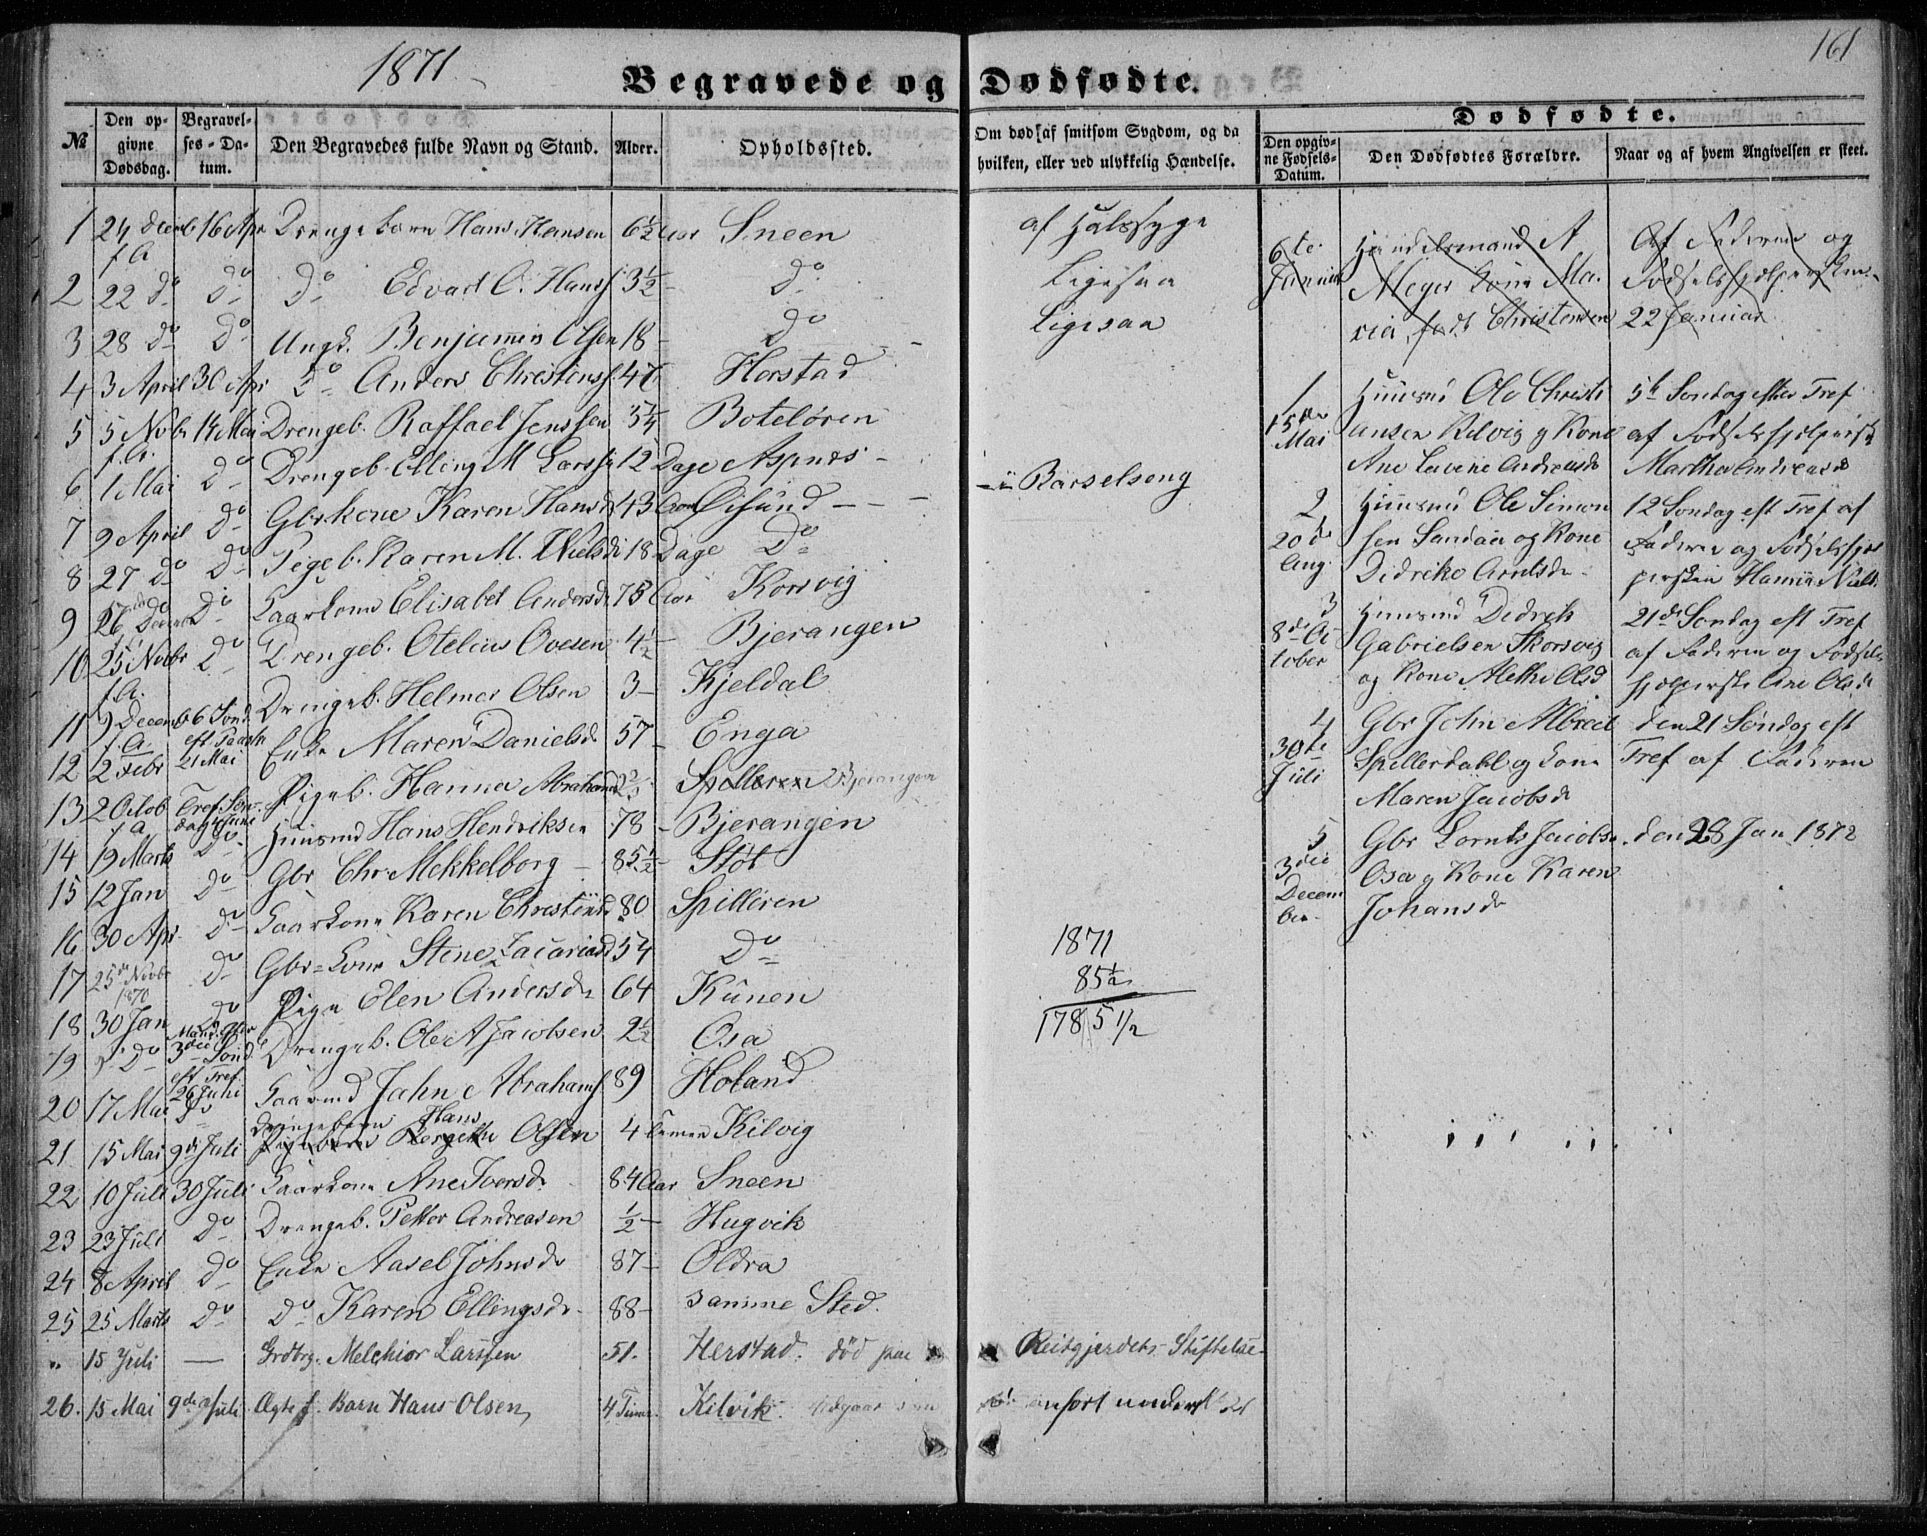 161
1871
Begravede og Dødfødte.
№
Den opgivne Dødsdag.
Begravelses-Datum.
Den Begravedes fulde Navn og Stand.
Alder.
Opholdssted.
Om død af smitsom Sygdom, og da hvilken, eller ved ulykkelig Hændelse.
Dødfødte.
Den opgivne Fødsels-Datum.
Den Dødfødtes Forældre.
Naar og af hvem Angivelsen er skeet.
1 24 Decemb f.A. 16 Apr Drengebarn Hans Hansen 6½ Aar Sneen af Halssyge
2 22 Do Do Do Edvart O. Hanss 3½ - Do Ligesaa
3 28 Do Do Ungk. Benjamin Olsen 18 - Do Ligesaa
4 3 April 30 Apr Do Anders Christenss. 47 Horstad
5 5 Novbr f.A. 14 Mai Drengeb. Raffael Jenssen 3¼ Boteløren
6 1 Mai Do Drengeb. Elling M Larss 12 Dage Aspnes -
7 9 April Do Gbrkone Karen Hansd 43 Aar Øisund - - - i Barselseng
8 27 do Do Pigeb. Karen M. Nielsd 18 Dage Do
9 26 Decemb Do Kaarkone Elisabet Andersd 75 Aar Korsvig
10 25 Novbr f.A. Do Drengeb. Otelius Ovesen 4½ - Bjerangen
11 9 Decemb f.A. 6 Sond. eft Paaske 21 Mai Drengeb. Helmer Olsen 3 - Kjeldal
12 2 Febr Enke Maren Danielsd 57 - Enga
13 2 Octob f.A. Tref. Søndag 4 Juni Pigeb. Hanna Abrahamsd Spilleren Bjerangen
14 19 Marts Do Huusmd Hans Hendriksen 78 - Bjerangen
15 12 Jan Do Gbr Chr Mekkelborg - 85½ - Støt
16 30 Apr. Do Kaarkone Karen Christensd 80 Spilleren
17 25de Novbr 1870 Do Gbr-kone Stine Zacariasd 54 Do
18 30 Jan Do Pige Elen Andersdr 64 Kunen
19 Do 3die Sønd. eft Tref 26 Juni Drengeb. Ole A Jacobsen 2½ Osa
20 17 Mai Do Kaarmd Jahn Abrahams. 89 Holand
21 15 Mai 9de Juli Drengebarn Hans Pigebarn Bergethe Olsen 4 Timer Kilvig
22 10 Juli 30 Juli Kaarkone Ane Iversd. 84 Aar Sneen
23 23 Juli Do Drengeb. Petter Andreasen ½ - Hugvik
24 8 April Do Enke Aasel Johnsdr 87 - Oldra
25 25 Marts Do Do Karen Ellingsdr. 88 - samme Sted.
" 15 Juli — Grdbrg. Melchior Larssen 51. Herstad. død paa Reitgjerdets Stiftelse.
26. 15 Mai 9de Juli Ægte f. Barn Hans Olsen, 4 Timer. Kilvik. Udgaar som anført under № 21
1871
85½
1785 1/2
6te Januar Handelsmand A Meyer kone Maria, født Christensen Af Faderen og Fødselshjælpersken 22 Januar
1 15de Mai Huusmd Ole Christiansen Kilvig og Kone Ane Lavine Andreasdr 5te Søndag efter Tref af Fødselshjælperske Martha Andreasd
2 20de Aug. Huusmd Ole Simonsen Sandaa og Kone Didrike Arntsdr 12 Søndag eft Tref af Faderen og Fødselshjælpersken
3 8de October Huusmd Didrik Gabrielsen Skorsvig og Kone Alethe Olsd 21de Søndag eft Tref af Faderen og Fødselshjælperske Ane Olsdr
4 30te Juli Gbr John Albret Spillerdahl og kone Maren Jacobsdr den 21 Søndag eft Tref af Faderen
5 3die December Gbr Lornts Jacobs. Osa og Kone Karen Johansdr den 28 Jan 1872